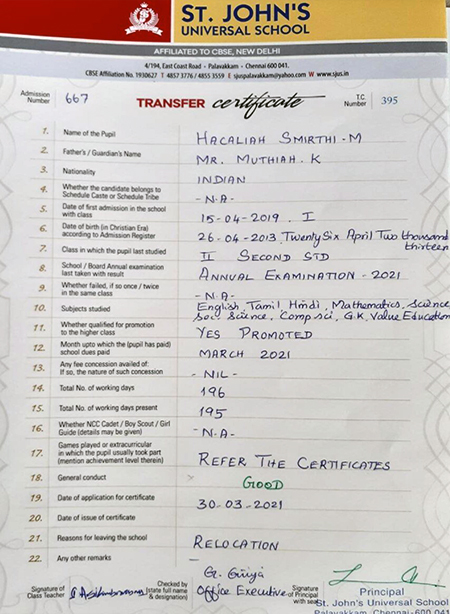 ST. JOHN'S
UNIVERSAL SCHOOL
AFFILIATED TO CBSE, NEW DELHI
4/194, East Coast Road - Palavakkam - Chennai 600 041.
CBSE Affiliation No. 1930627 T 4857 3776 / 4855 3559 E sjuspalavakkam@yahoo.com W www.sjus.in
Admission Number 667 TRANSFER certificate T.C. Number 395
1. Name of the Pupil HACALIAH SMIRTHI-M
2. Father's / Guardian's Name MR. MUTHIAH. K
3. Nationality INDIAN
4. Whether the candidate belongs to
Schedule Caste or Schedule Tribe - N.A -
5. Date of first admission in the school
with class 15-04-2019. I
6. Date of birth (in Christian Era)
according to Admission Register 26-04-2013, Twenty Six April Two thousand
thirteen
7. Class in which the pupil last studied II SECOND STD
8. School / Board Annual examination
last taken with result ANNUAL EXAMINATION - 2021
9. Whether failed, if so once / twice
in the same class - N.A -
10. Subjects studied English, Tamil Hindi, Mathematics, Science
Soc. Science, Comp sci, G.K, Value Education
11. Whether qualified for promotion
to the higher class YES PROMOTED
12. Month upto which the (pupil has paid)
school dues paid MARCH 2021
13. Any fee concession availed of:
If so, the nature of such concession - NIL -
14. Total No. of working days 196
15. Total No. of working days present 195
16. Whether NCC Cadet / Boy Scout / Girl
Guide (details may be given) - N.A -
17. Games played or extracurricular
in which the pupil usually took part
(mention achievement level therein) REFER THE CERTIFICATES
18. General conduct GOOD
19. Date of application for certificate 30-03-2021
20. Date of issue of certificate
21. Reasons for leaving the school RELOCATION
22. Any other remarks —
Signature of
Class Teacher
Checked by
(state full name
& designation)
G. Girija
Office Executive
Signature
of Principal
with seal
Principal
St. John's Universal School
Palavakkam, Chennai-600 041